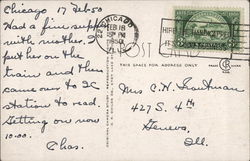 Chicago 17 Feb 50
Had a fine supper
with mother. I
put her on the
train and then
came over to IC
station to read.
Getting on now
10:00.
Chas.
CHICAGO
FEB 18
1950
POST CARD
THIS SPACE FOR ADDRESS ONLY.
Mrs C. H.
427 S. 4th
Geneva,
Ill.